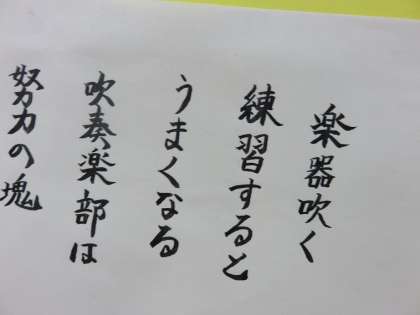 楽器吹く
練習すると
うまくなる
吹奏楽部は
努力の塊